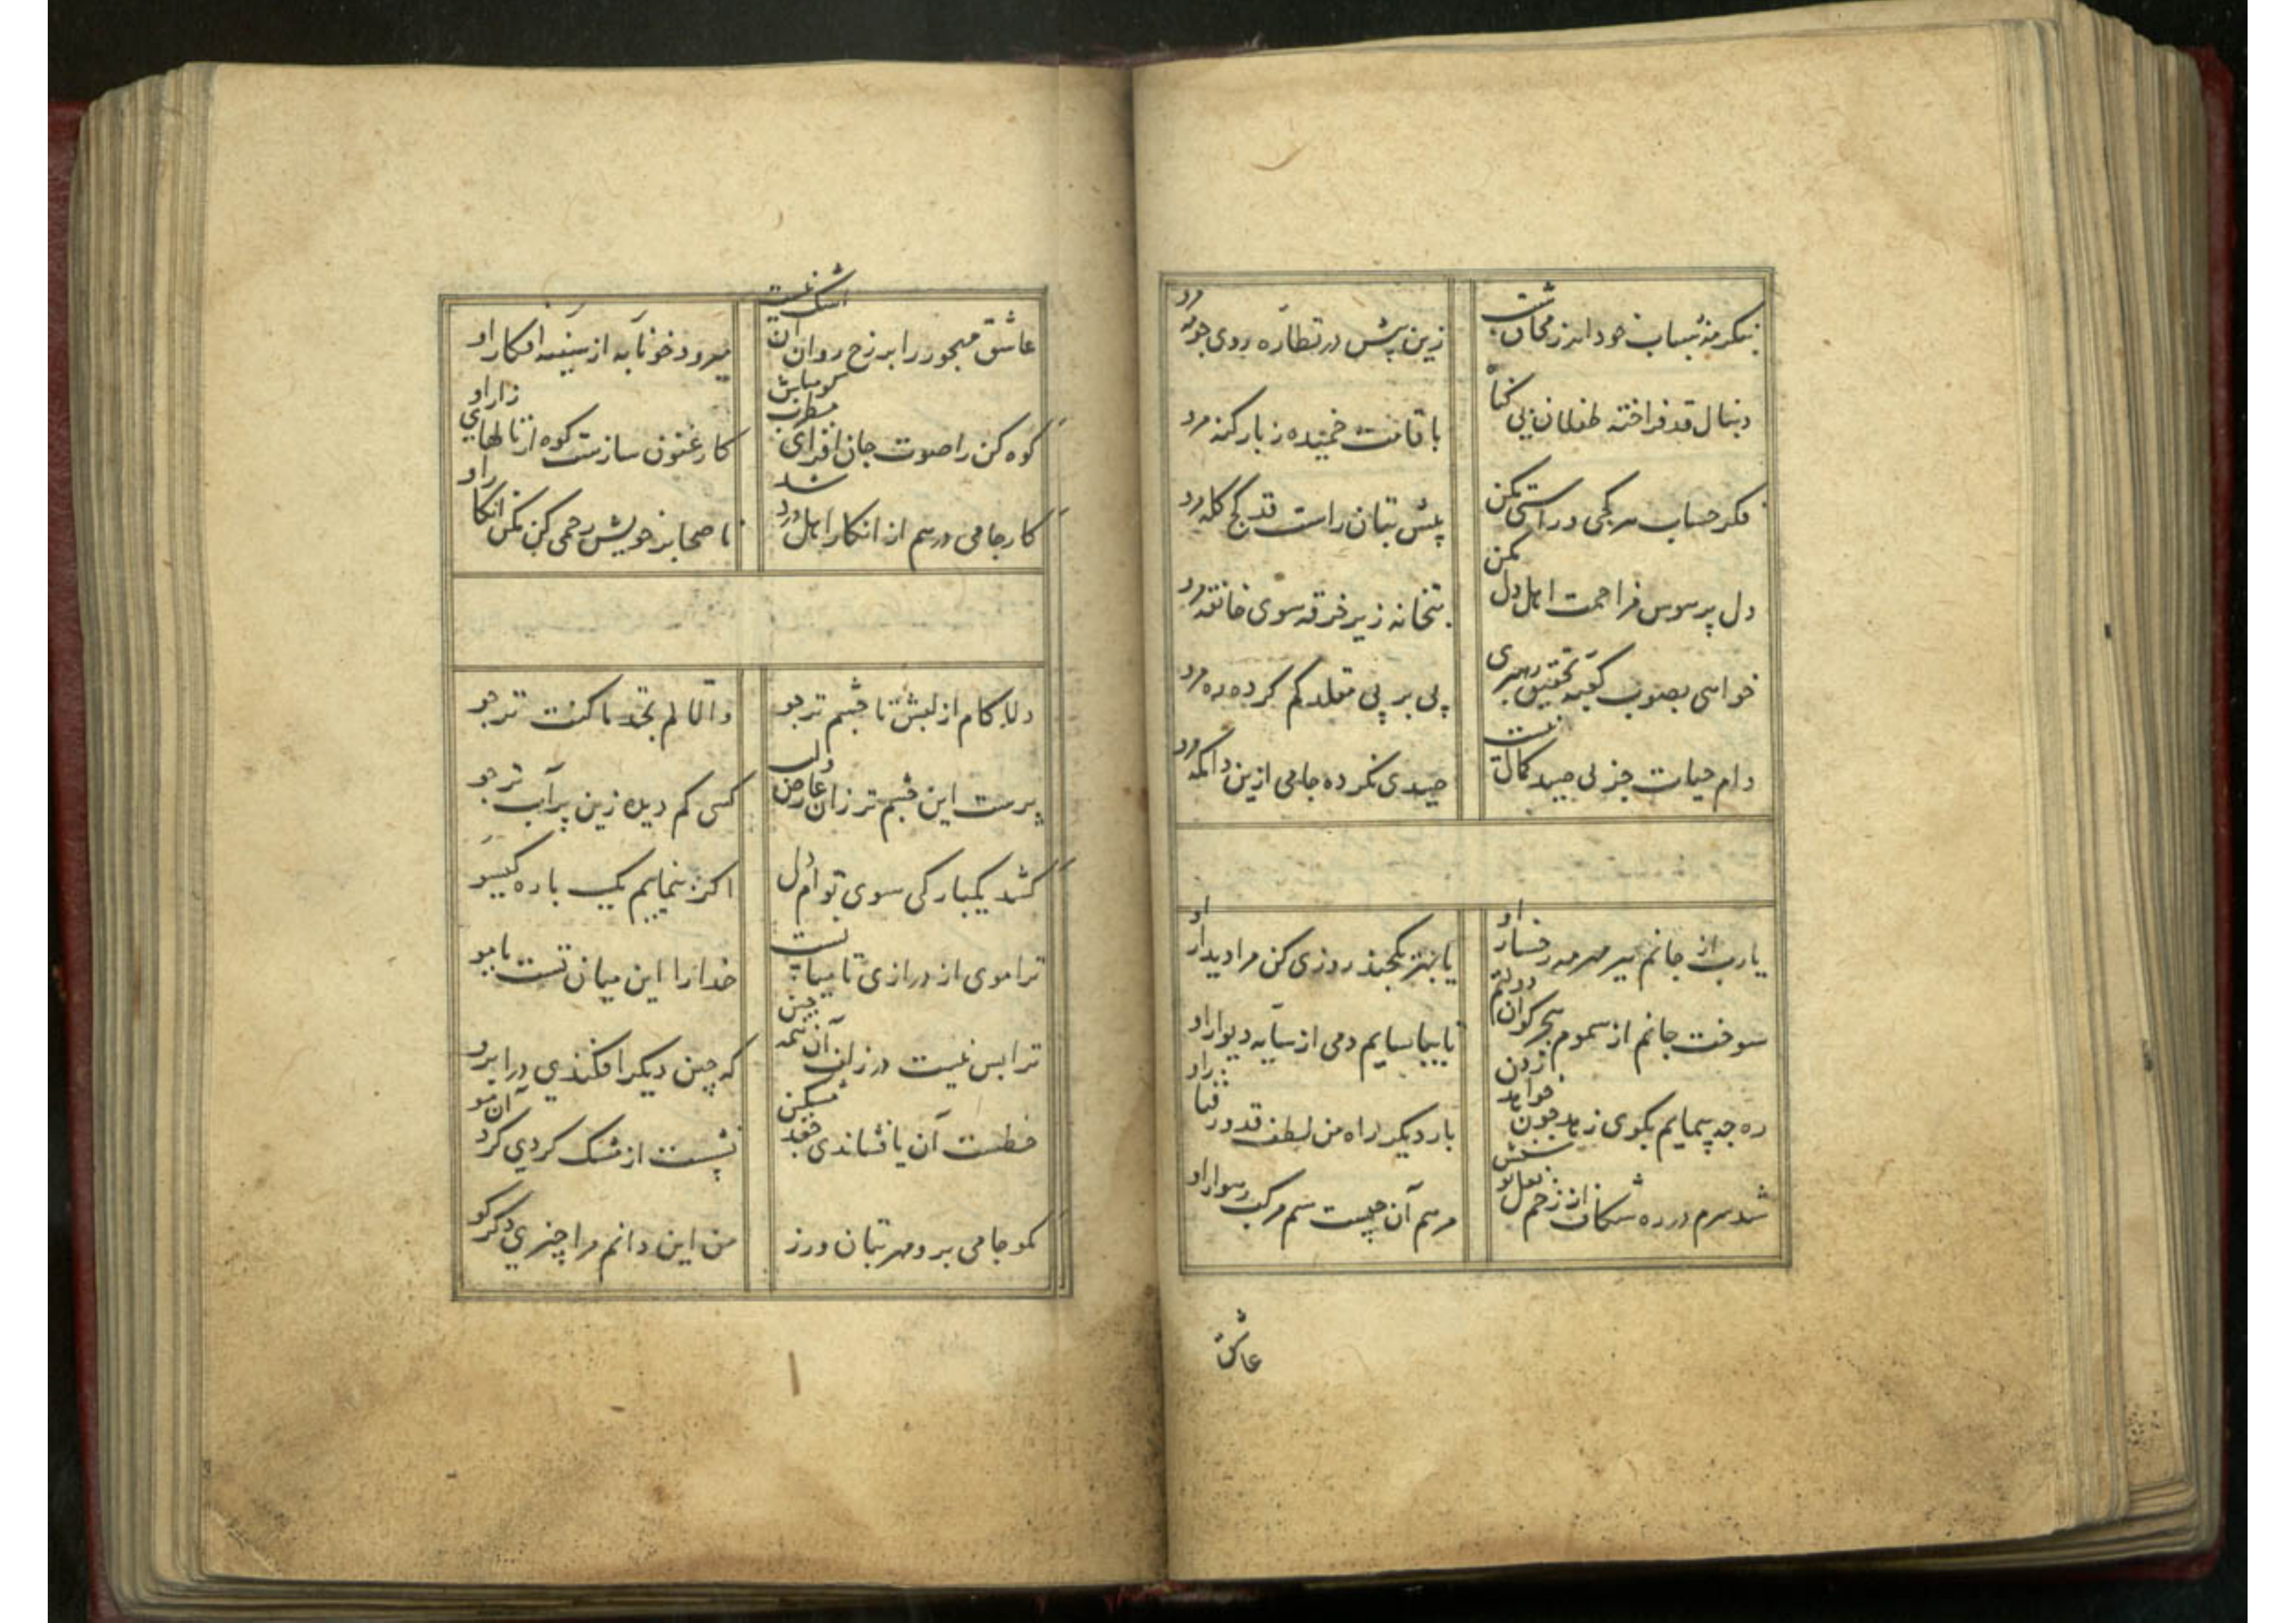 بنگر مه شباب خود اندر محاق شیب
زین پیش در نظاره روی چو مه مرو
دنبال قد فراخته طفلان بی گناه
با قامت خمیده ز بار گنه مرو
فکر حساب هر کجی و راستی بکن
پیش بتان راست قد کج کله مرو
دل پر هوس مزاحمت اهل دل مکن
بتخانه زیر خرقه سوی خانقه مرو
خواهی بصوب کعبه تحقیق ره بری
پی بر پی مقلد گم کرده ره مرو
دام حیات جز پی صید کمال نیست
صیدی نکرده جامی ازین دامگه مرو
یارب از جانم ببر مهر مه رخسار او
یا بهر یکچند روزی کن مرا دیدار او
سوخت جانم از سموم هجر کو آن دولتم
تا بیاسایم دمی از سایه دیوار او
ره چه پیمایم بکوی زهد چون خواهد زدن
بار دیگر راه من لطف قد و رفتار او
شد سرم در ره شکاف از زخم نعل توسنش
مرهم آن چیست سم مرکب رهوار او
عاشق
عاشق مهجور را بر رخ روان آن اشک نیست
میرود خونابه از سینه افکار او
کوه کن را صوت جان افزای مطرب گو مباش
کارغنون سازست کوه از نالهای زار او
کار جامی درهم از انکار اهل درد شد
ناصحا بر خویش رحمی کن مکن انکار او
دلا کام از لبش تا چشم تر جو
وان لم تجد ما کنت ترجو
پرست این چشم تر زان عارض ولب
کسی کم دیده زین پرآب تر جو
کشد یکبارگی سوی تو ام دل
اگر بنماییم یک باره گیسو
ترا موی از درازی تا میانست
خدا را این میان تست یا مو
ترا بس نیست در زلف آن همه چین
که چین دیگر افکندی در ابرو
خطست آن یا فشاندی جعد مشکین
نشست از مشک گردی گرد آن رو
مگو جامی برو مهر بتان ورز
من این دانم مرا چیزی دگر گو